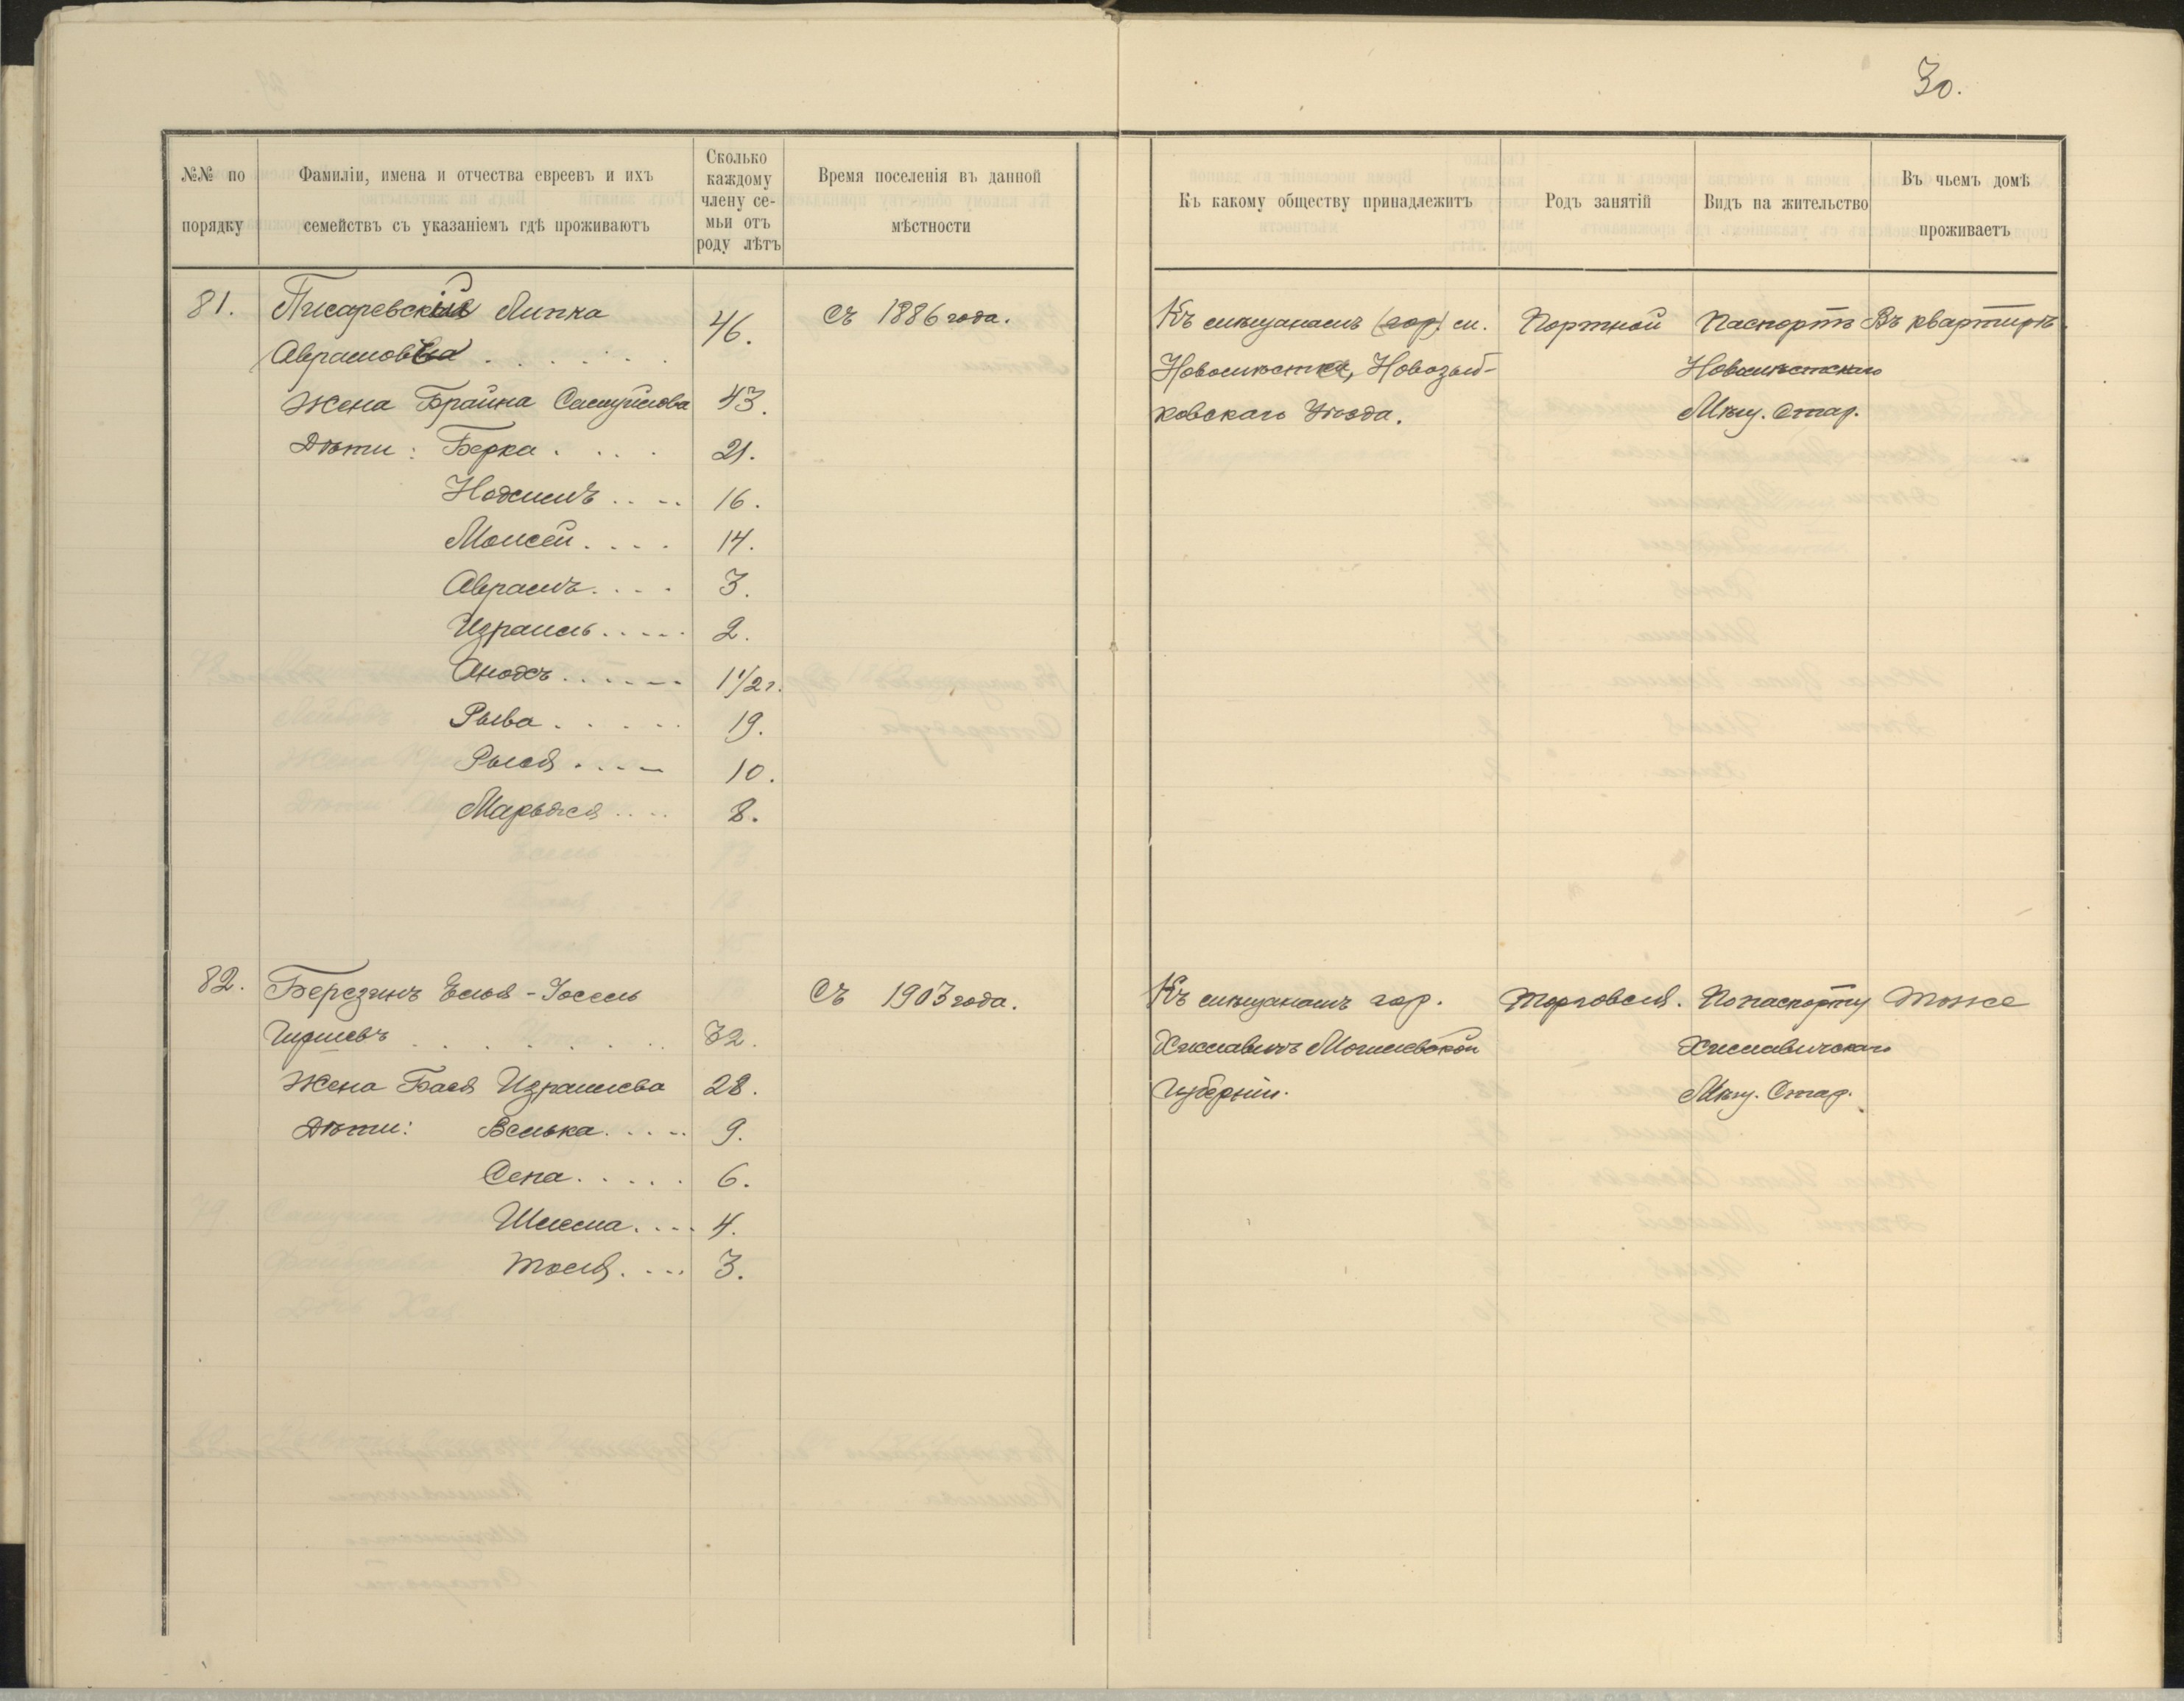 30.
№№ по порядку
Фамиліи, имена и отчества евреевъ и ихъ семействъ съ указаніемъ гдѣ проживаютъ
Сколько каждому члену семьи отъ роду лѣтъ
Время поселенія въ данной мѣстности
Къ какому обществу принадлежитъ
Родъ занятій
Видъ на жительство
Въ чьемъ домѣ проживаетъ
81. Писаревскій Липка
Аврамов
46.
Съ 1886 года.
Къ мѣщанамъ (гор) м.
Новомѣстка, Новозыб-
ковскаго Уѣзда.
Портной
Паспортъ
Новомѣстскаго
Мѣщ. Стар.
Въ квартирѣ.
Жена Брайна Самуйлова 43.
Дѣти: Берка . . . . 21.
16.
Моисей . . . . 14.
Аврамъ . . . . 3.
Израиль . . . . . 2.
1 1/2 г.
Рыва . . . . . 19.
Рыся . . . . 10.
Марьяся . . . . 8.
82. Березинъ Елья-Іосель
Гиршевъ . . . . . . . 32.
Съ 1903 года.
Къ мѣщанамъ гор.
Хиславичъ Могилевской
Губерніи.
Торговля.
По паспорту
Хиславичскаго
Мѣщ. Стар.
Тоже
Жена Бася Израилева 28.
Дѣти: Велька . . . . . 9.
Сена . . . . . 6.
Шлема . . . . 4.
Тэмя . . . . 3.